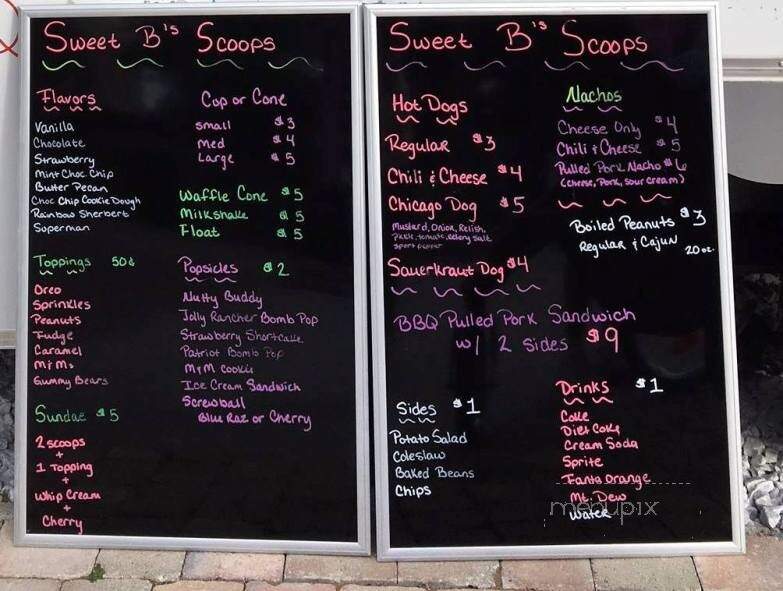 Sweet B's Scoops
Flavors
Vanilla
Chocolate
Strawberry
Mint Choc Chip
Butter Pecan
Choc Chip Cookie Dough
Rainbow Sherbert
Superman
Toppings 50¢
Oreo
Sprinkles
Peanuts
Fudge
Caramel
M+Ms
Gummy Bears
Sundae $5
2 scoops
+
1 Topping
+
Whip Cream
+
Cherry
Cup or Cone
Small $3
Med $4
Large $5
Waffle Cone $5
Milkshake $5
Float $5
Popsicles $2
Nutty Buddy
Jolly Rancher Bomb Pop
Strawberry Shortcake
Patriot Bomb Pop
M+M Cookie
Ice Cream Sandwich
Screwball
Blue Raz or Cherry
Sweet B's Scoops
Hot Dogs
Regular $3
Chili & Cheese $4
Chicago Dog $5
Mustard, Onion, Relish,
Pickle, tomato, celery salt
sport pepper
Sauerkraut Dog $4
Nachos
Cheese Only $4
Chili & Cheese $5
Pulled Pork Nacho $6
(Cheese, Pork, Sour cream)
Boiled Peanuts $3
Regular & Cajun 20 oz.
BBQ Pulled Pork Sandwich
w/ 2 sides $9
Sides $1
Potato Salad
Coleslaw
Baked Beans
Chips
Drinks $1
Coke
Diet Coke
Cream Soda
Sprite
Fanta Orange
Mt. Dew
Water
menupix